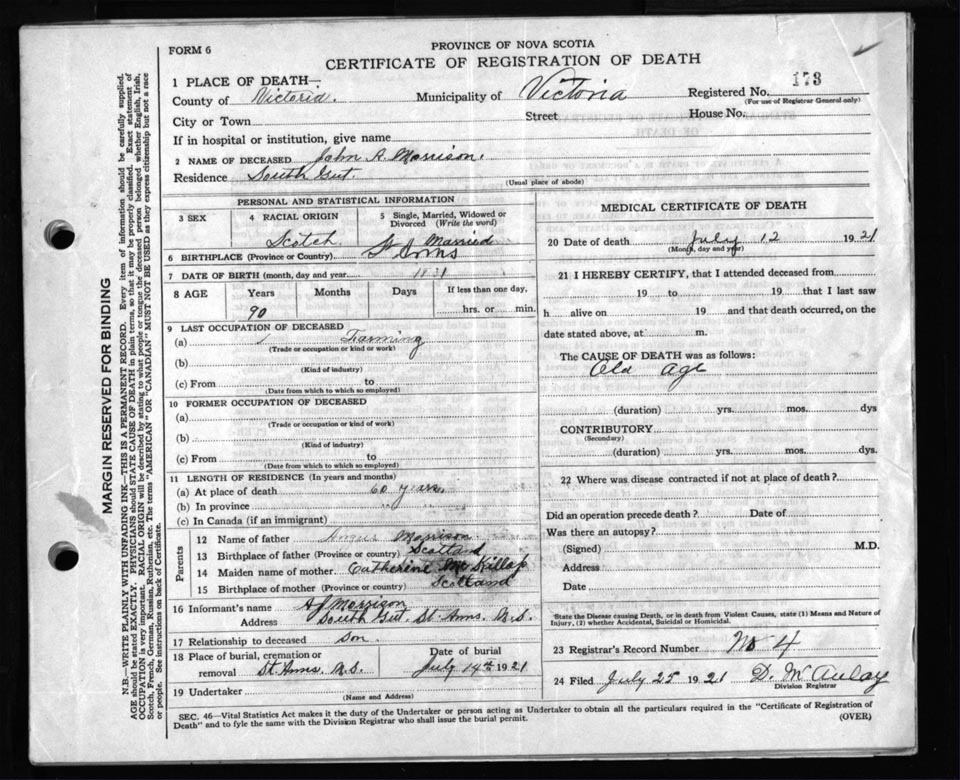 FORM 6
PROVINCE OF NOVA SCOTIA
CERTIFICATE OF REGISTRATION OF DEATH
173
1 PLACE OF DEATH—
County of Victoria. Municipality of Victoria Registered No.
(For use of Registrar General only)
City or Town Street House No.
If in hospital or institution, give name
2 NAME OF DECEASED John A. Morrison.
Residence South Gut.
(Usual place of abode)
PERSONAL AND STATISTICAL INFORMATION
3 SEX 4 RACIAL ORIGIN 5 Single, Married, Widowed or Divorced (Write the word)
Scotch Married
6 BIRTHPLACE (Province or Country) St Anns
7 DATE OF BIRTH (month, day and year) 1831
8 AGE Years Months Days If less than one day,
90 hrs. or min.
9 LAST OCCUPATION OF DECEASED
(a) Farming
(Trade or occupation or kind or work)
(b)
(Kind of industry)
(c) From to
(Date from which to which so employed)
10 FORMER OCCUPATION OF DECEASED
(a)
(Trade or occupation or kind of work)
(b)
(Kind of industry)
(c) From to
(Date from which to which so employed)
11 LENGTH OF RESIDENCE (In years and months)
(a) At place of death 60 years.
(b) In province " "
(c) In Canada (if an immigrant)
Parents
12 Name of father Angus Morrison.
13 Birthplace of father (Province or country) Scotland
14 Maiden name of mother. Catherine
15 Birthplace of mother (Province or country) Scotland
16 Informant's name A J Morrison
Address South Gut St. Anns. N.S.
17 Relationship to deceased Son.
18 Place of burial, cremation or Date of burial
removal St. Anns. N.S. July 14th 1921
19 Undertaker
(Name and Address)
MEDICAL CERTIFICATE OF DEATH
20 Date of death July 12 1921
(Month, day and year)
21 I HEREBY CERTIFY, that I attended deceased from
19 to 19 that I last saw
h alive on 19 and that death occurred, on the
date stated above, at m.
The CAUSE OF DEATH was as follows:
Old Age
(duration) yrs. mos. dys
CONTRIBUTORY
(Secondary)
(duration) yrs. mos. dys.
22 Where was disease contracted if not at place of death?
Did an operation precede death? Date of
Was there an autopsy?
(Signed) M.D.
Address
Date
State the Disease causing Death, or in death from Violent Causes, state (1) Means and Nature of
Injury, (2) whether Accidental, Suicidal or Homicidal.
23 Registrar's Record Number No 4
24 Filed July 25 1921 D. McAulay
Division Registrar
SEC. 46—Vital Statistics Act makes it the duty of the Undertaker or person acting as Undertaker to obtain all the particulars required in the "Certificate of Registration of
Death" and to fyle the same with the Division Registrar who shall issue the burial permit. (OVER)
MARGIN RESERVED FOR BINDING
N.B.—WRITE PLAINLY WITH UNFADING INK—THIS IS A PERMANENT RECORD. Every item of information should be carefully supplied.
AGE should be stated EXACTLY. PHYSICIANS should STATE CAUSE OF DEATH in plain terms, so that it may be properly classified. Exact statement of
OCCUPATION is very important. RACIAL ORIGIN will be described by stating to what people or tongue the deceased person belonged whether English, Irish,
Scotch, French, German, Russian, Ruthenian, etc. The terms "AMERICAN" or "CANADIAN" MUST NOT BE USED as they express citizenship but not a race
or people. See instructions on back of Certificate.